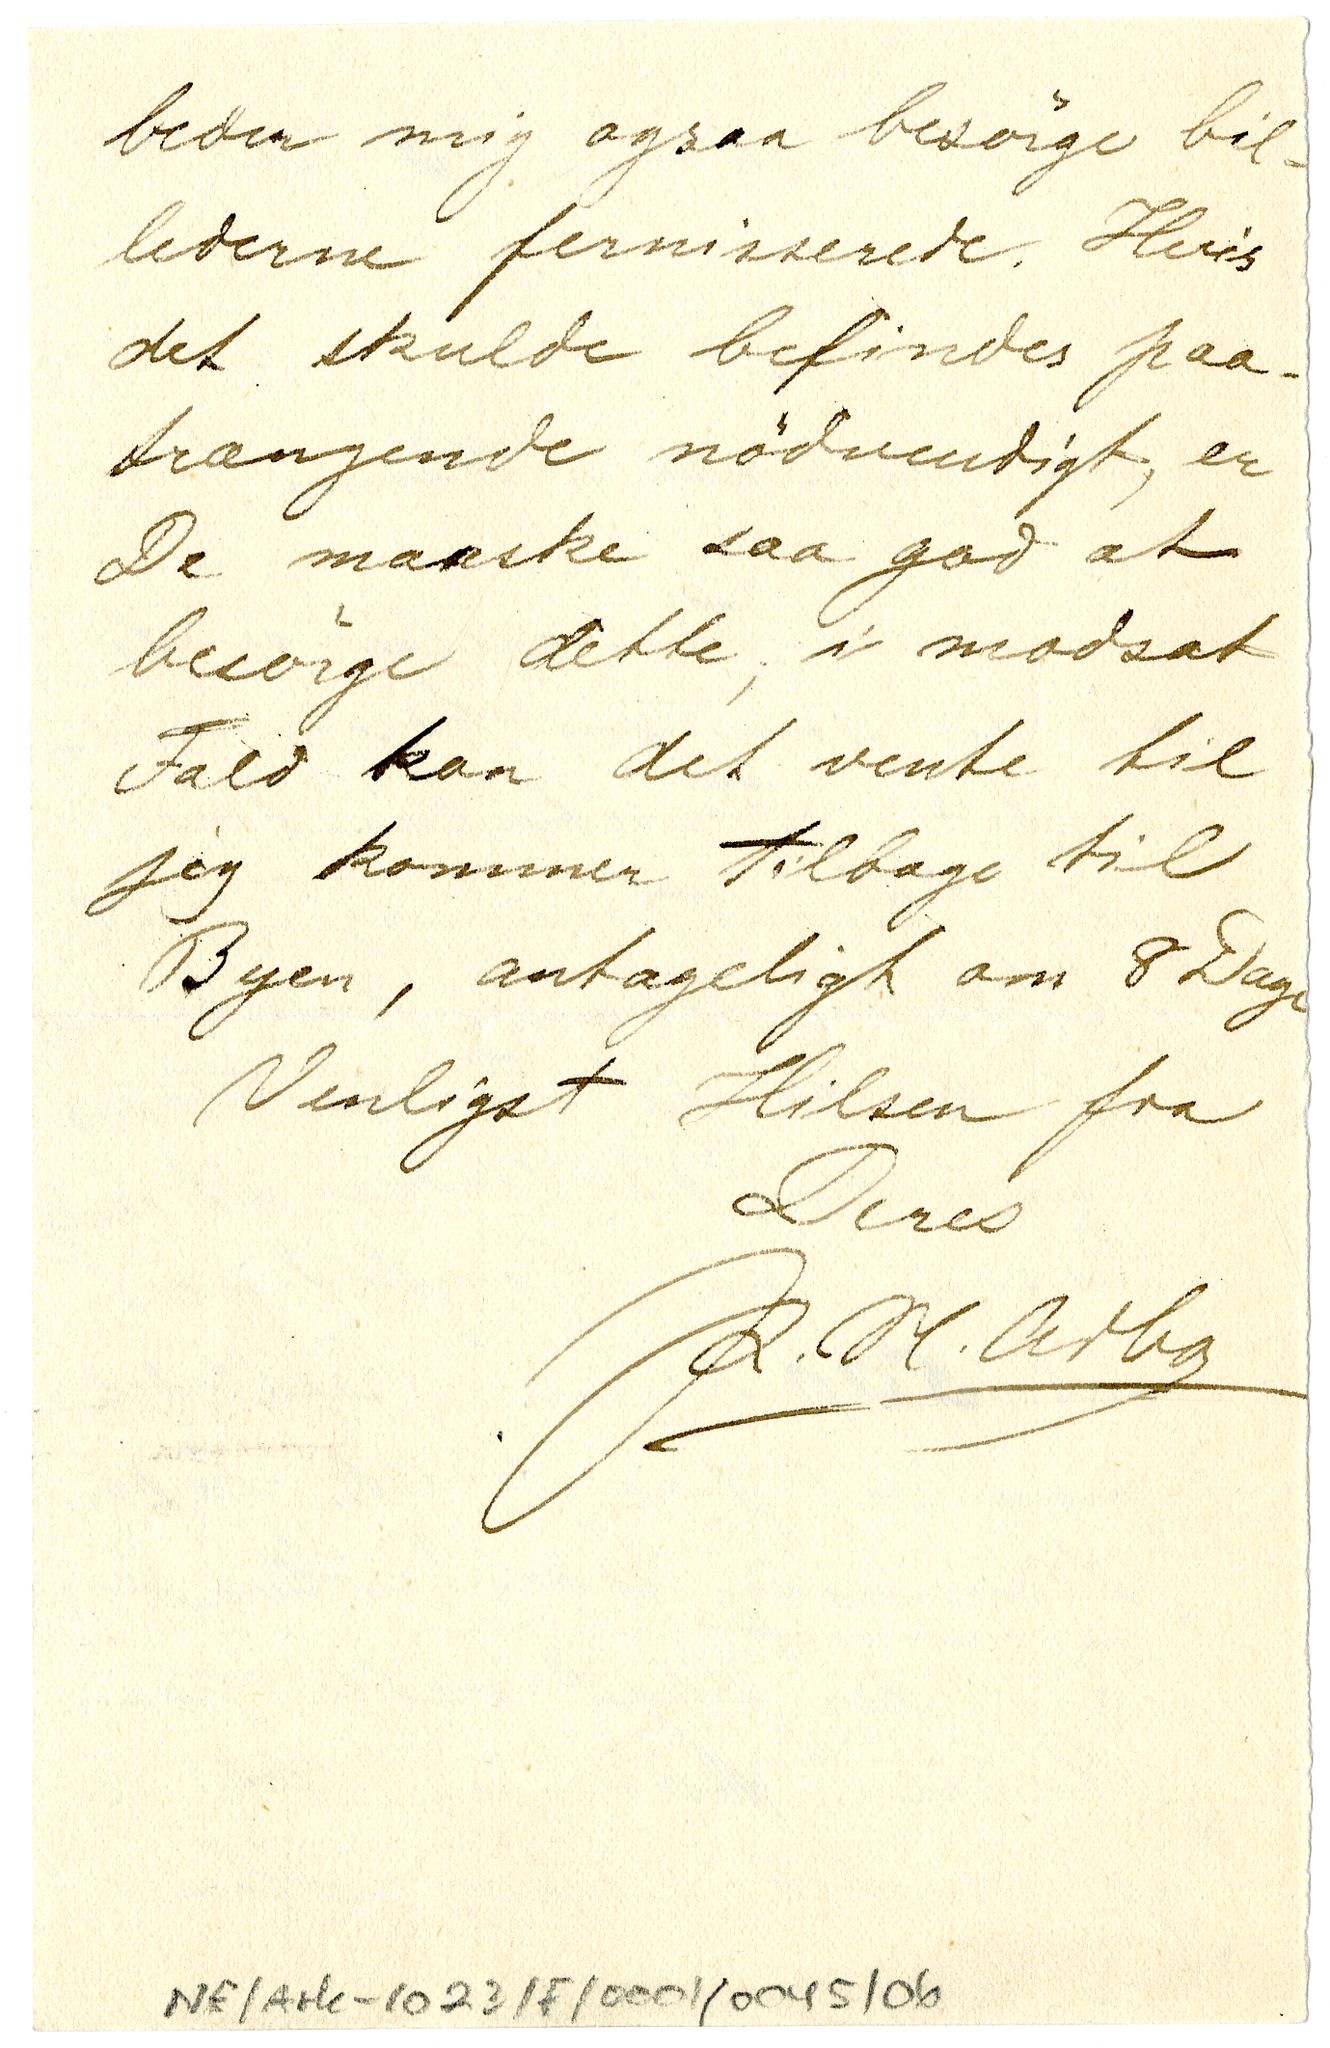 beder mig ogsaa besörge bil-
lederne fernisserede. Hvis
det skulde befindes paa-
trængende nödvendigt, er
De maaske saa god at
besörge dette, i modsat
Fald kan det vente til
jeg kommer tilbage til
Byen, antageligt om 8 Dage
Venligst Hilsen fra
Deres
P. N. Arbo
NE/Ark-1023/F/0001/0045/06